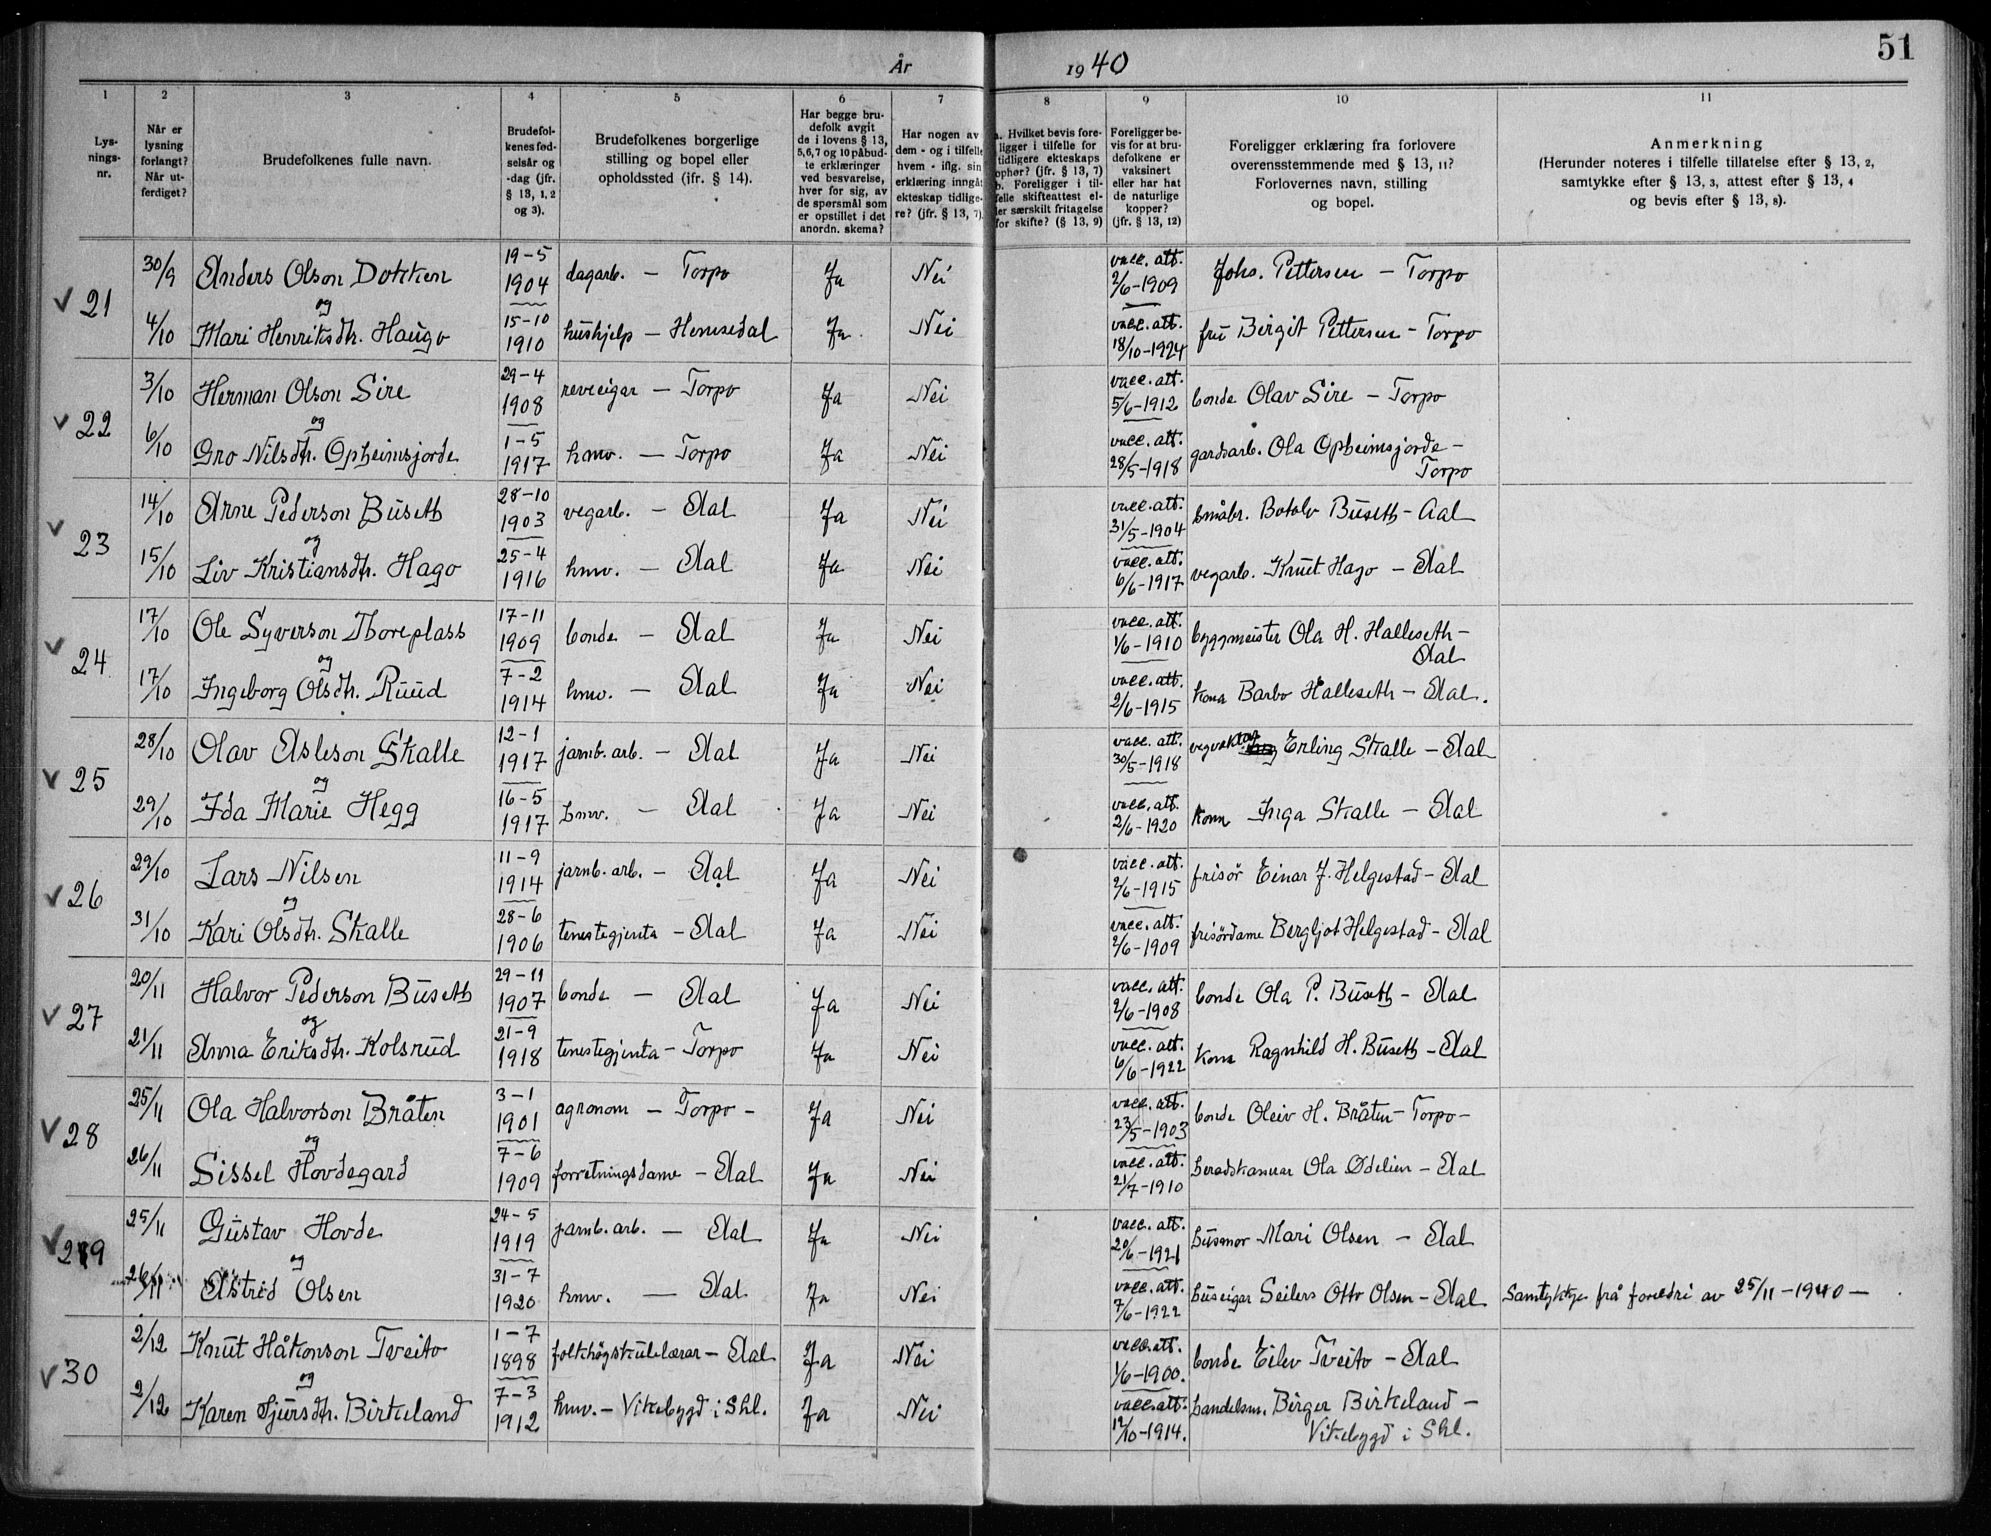 År 1940 51
1 2 3 4 5 6 7 8 9 10 11
Lys-
nings-
nr.
Når er
lysning
forlangt?
Når ut-
ferdiget?
Brudefolkenes fulle navn.
Brudefol-
kenes fød-
selsår og
-dag (jfr.
§ 13, 1, 2
og 3).
Brudefolkenes borgerlige
stilling og bopel eller
opholdssted (jfr. § 14).
Har begge bru-
defolk avgit
de i lovens § 13,
5,6,7 og 10 påbud-
te erklæringer
ved besvarelse,
hver for sig, av
de spørsmål som
er opstillet i det
anordn. skema?
Har nogen av
dem - og i tilfelle
hvem - iflg. sin
erklæring inngått
ekteskap tidlige-
re? (jfr. § 13, 7).
a. Hvilket bevis fore-
ligger i tilfelle for
tidligere ekteskaps
ophør? (jfr. § 13, 7)
b. Foreligger i til-
felle skifteattest el-
ler særskilt fritagelse
for skifte? (§ 13, 9)
Foreligger be-
vis for at bru-
defolkene er
vaksinert
eller har hat
de naturlige
kopper?
(jfr. § 13, 12)
Foreligger erklæring fra forlovere
overensstemmende med § 13, 11?
Forlovernes navn, stilling
og bopel.
Anmerkning
(Herunder noteres i tilfelle tillatelse efter § 13, 2,
samtykke efter § 13, 3, attest efter § 13, 4
og bevis efter § 13, 8).
V 21 30/9 Anders Olson Dokken 19-5 1904 dagarb. - Torpo Ja Nei vacc. att. 2/6-1909 Johs. Pettersen - Torpo
og
4/10 Mari Henriksdtr. Haugo 15-10 1910 hushjelp - Hemsedal Ja Nei vacc. att. 18/10-1924 fru Birgit Pettersen - Torpo
V 22 3/10 Herman Olson Sire 29-4 1908 reveeigar - Torpo Ja Nei vacc. att. 5/6-1912 bonde Olav Sire - Torpo
og
6/10 Gro Nilsdtr. Opheimsjorde 1-5 1917 hmv. - Torpo Ja Nei vacc. att. 28/5-1918 gardsarb. Ola Opheimsjorde -
Torpo
V 23 14/10 Arne Pederson Buseth 28-10 1903 vegarb. - Aal Ja Nei vacc. att. 31/5-1904 småbr. Botolv Buseth - Aal
og
15/10 Liv Kristiansdtr. Hago 25-4 1916 hmv. - Aal Ja Nei vacc. att. 6/6-1917 vegarb. Knut Hago - Aal
V 24 17/10 Ole Syverson Thoreplass 17-11 1909 bonde - Aal Ja Nei vacc. att. 1/6-1910 byggmeister Ola H. Halleseth -
Aal
og
17/10 Ingeborg Olsdtr. Ruud 7-2 1914 hmv. - Aal Ja Nei vacc. att. 2/6-1915 kona Barbo Halleseth - Aal.
V 25 28/10 Olav Asleson Skalle 12-1 1917 jarnb. arb. - Aal Ja Nei vacc. att. 30/5-1918 vegvaktar Erling Skalle - Aal
og
29/10 Ida Marie Hegg 16-5 1917 hmv. - Aal Ja Nei vacc. att. 2/6-1920 kona Inga Skalle - Aal
V 26 29/10 Lars Nilsen 11-9 1914 jarnb. arb. - Aal Ja Nei vacc. att. 2/6-1915 frisör Einar J. Helgestad - Aal
og
31/10 Kari Olsdtr. Skalle 28-6 1906 tenestegjenta - Aal Ja Nei vacc. att. 2/6-1909 frisördame Bergljot Helgestad - Aal
V 27 20/11 Halvor Pederson Buseth 29-11 1907 bonde - Aal Ja Nei vacc. att. 2/6-1908 bonde Ola P. Buseth - Aal
og
21/11 Anna Eriksdtr. Kolsrud 21-9 1918 tenestegjenta - Torpo Ja Nei vacc. att. 6/6-1922 kona Ragnhild H. Buseth - Aal
V 28 25/11 Ola Halvorson Bråten 3-1 1901 agronom - Torpo - Ja Nei vacc. att. 23/5-1903 bonde Oleiv H. Bråten - Torpo -
og
26/11 Sissel Hovdegard 7-6 1909 forretningsdame - Aal Ja Nei vacc. att. 21/7-1910 heradskasserar Ola Ødelien - Aal
V 29 25/11 Gustav Hovde 24-5 1919 jarnb. arb. - Aal Ja Nei vacc. att. 20/6-1921 husmor Mari Olsen - Aal
og
26/11 Astrid Olsen 31-7 1920 hmv. - Aal Ja Nei vacc. att. 7/6-1922 huseigar Seilers Otto Olsen - Aal Samtykkje frå foreldri av 25/11-1940 -
V 30 2/12 Knut Håkonson Tveito 1-7 1898 folkhögskulelærar - Aal Ja Nei vacc. att. 1/6-1900. bonde Eilev Tveito - Aal
og
2/12 Karen Sjursdtr. Birkeland 7-3 1912 hmv. - Vikebygd i Shl. Ja Nei vacc. att. 12/10-1914. handelsm. Birger Birkeland -
Vikebygd i Shl.